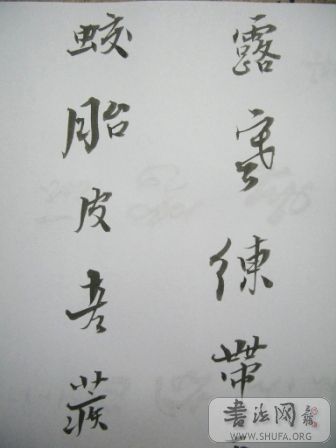 露寒練帶
蛟胎皮老蒺
書法网
WWW.SHUFA.ORG